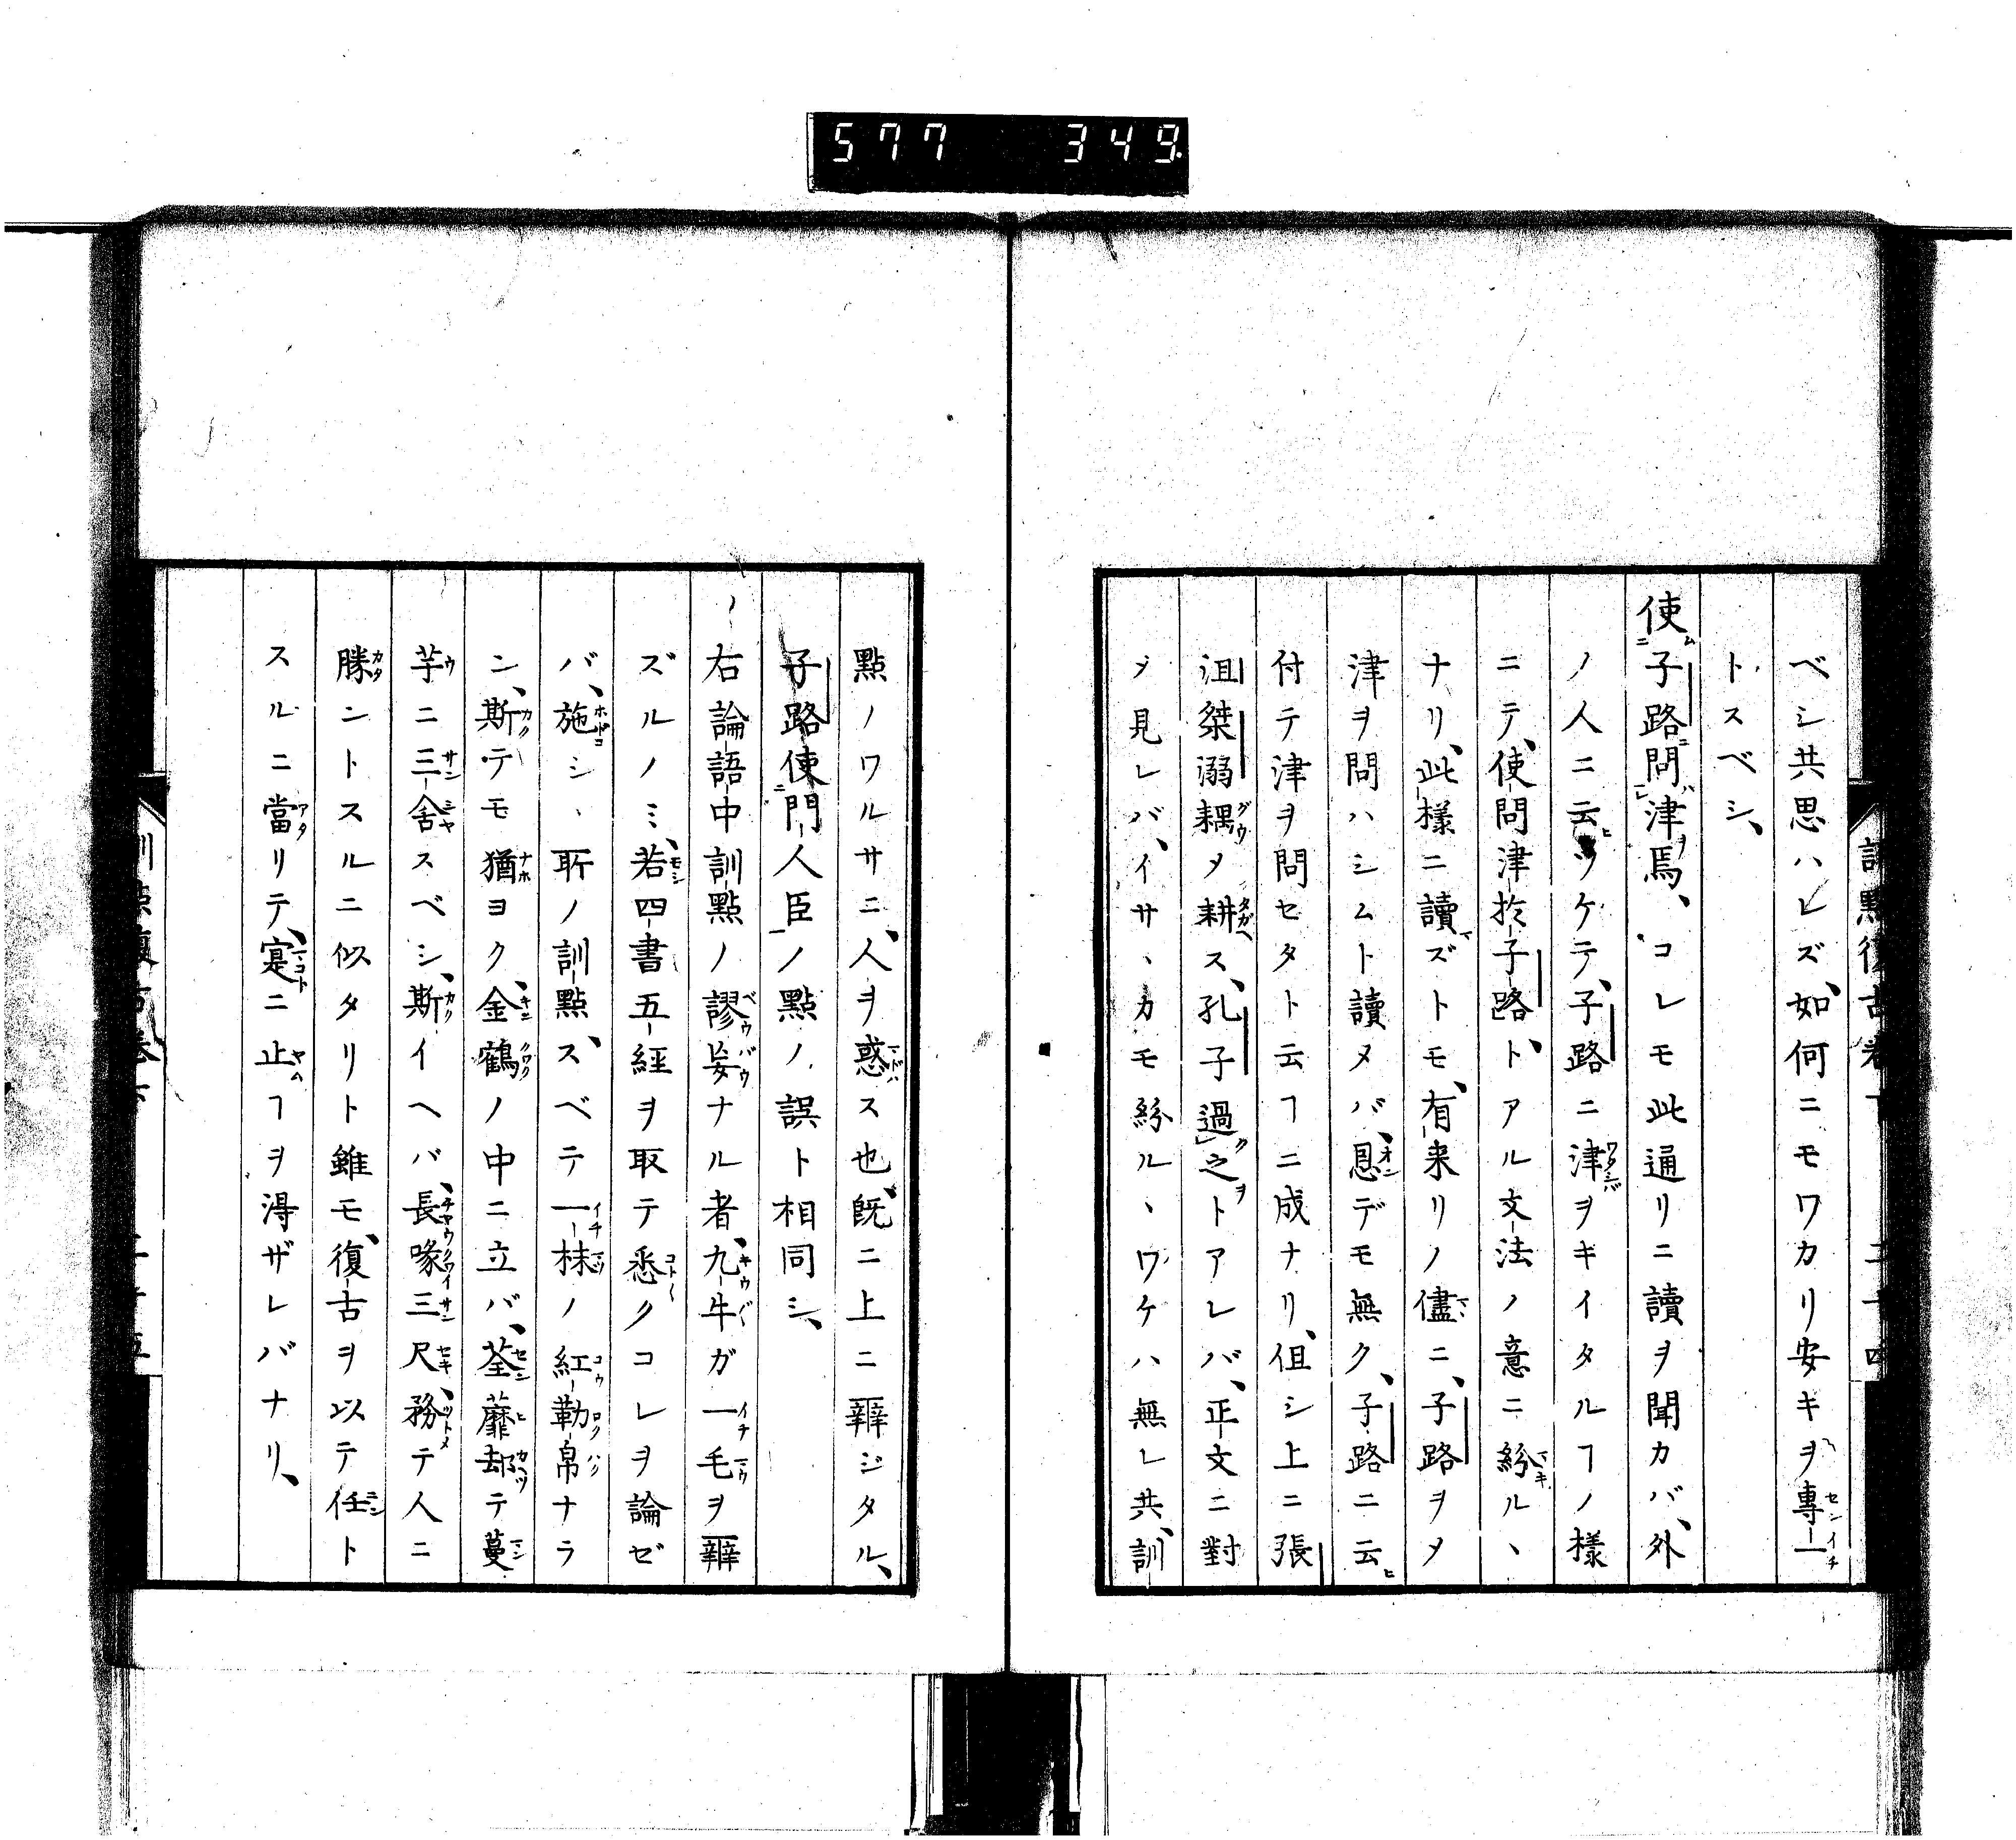 577 349
ベシ共思ハレズ、如何ニモワカリ安キヲ專一
トスベシ、
使子路問津焉、コレモ此通リニ讀ヲ聞カバ、外
ノ人ニ云ツケテ、子路ニ津ヲキイタルヿノ樣
ニテ、使問津於子路、トアル文法ノ意ニ紛ル、
ナリ、此樣ニ讀ズトモ、有来リノ儘ニ、子路ヲメ
津ヲ問ハシムト讀メバ、恩デモ無ク、子路ニ云
付テ津ヲ問セタト云ヿニ成ナリ、但シ上ニ張
沮桀溺耦メ耕ス、孔子過之トアレバ、正文ニ對
メ見レバ、イサヽカモ紛ルヽワケハ無レ共、訓
點ノワルサニ、人ヲ惑ス也、既ニ上ニ辨ジタル、
子路使門人臣ノ點ノ誤ト相同シ、
右論語中訓點ノ謬妄ナル者、九牛ガ一毛ヲ辨
ズルノミ、若四書五經ヲ取テ悉クコレヲ論ゼ
バ、施シヽ所ノ訓點、スベテ一抹ノ紅勒帛ナラ
ン、斯テモ猶ヨク、金鶴ノ中ニ立バ、荃蘼却テ蔓
芋ニ三舍スベシ、斯イヘバ、長喙三尺、務テ人ニ
勝ントスルニ似タリト雖モ、復古ヲ以テ任ト
スルニ當リテ、寔ニ止ヿヲ得ザレバナリ、